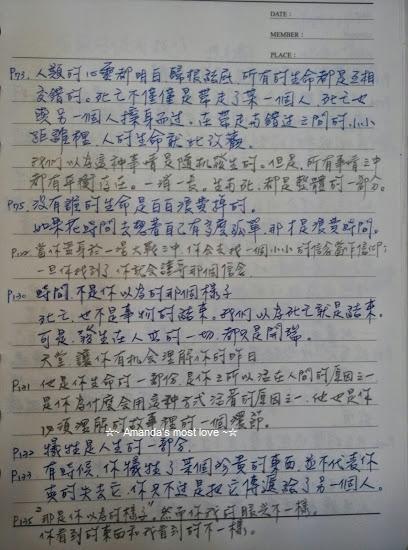 DATE :
MEMBER :
PLACE :
P73. 人類的心靈都明白歸根結底,所有的生命都是互相
交錯的。死亡不僅僅是帶走了某一個人,死亡也
與另一個人擦身而過,在帶走與錯過之間的小小
距離裡,人的生命就此改觀。
我們以為這種事情是隨機發生的。但是,所有事情之中
都有平衡存在。一消一長。生而死,都是整體的一部分。
P75. 沒有誰的生命是白白浪費掉的。
如果花時間去想著自己有多麼孤單,那才是浪費時間。
當你置身於一場大戰之中,你會去找一個小小的信念當作信仰;
一旦你找到了,你就會謹守那個信念
P130 時間,不是你以為的那個樣子
死亡,也不是事物的結束。我們以為死亡就是結束。
可是,發生在人世的一切,都只是開端。
天堂讓你有机会理解你的昨日
P131 他是你生命的一部份,是你之所以活在人間的原因之一
是你為什麼會用這種方式活著的原因之一,他也是你
必須理解的故事裡的一個環節。
☆~ Amanda's most love ~☆
P132 犧牲是人生的一部分
P133 有時候,你犧牲了某個珍貴的東西,並不代表你
真的失去它,你只不过是把它傳遞給了另一個人。
P135 那是你以為的樣子,然而你我的眼光不一樣。
你看到的東西和我看到的不一樣。